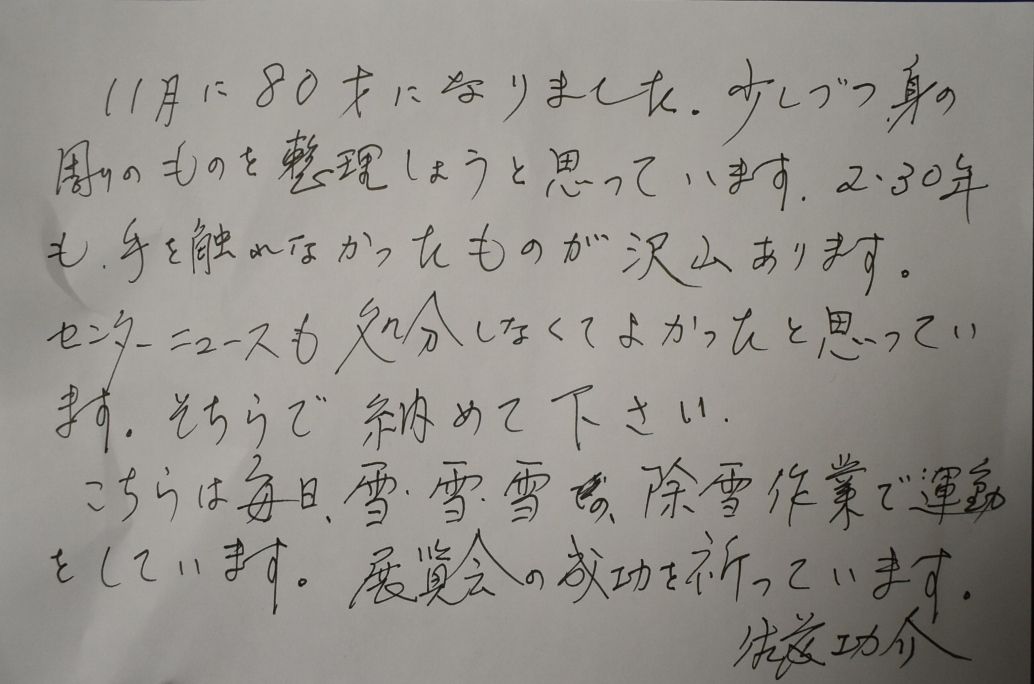 11月に80才になりました. 少しづつ身の
周りのものを整理しようと思っています. 2・30年
も、手を触れなかったものが沢山あります。
センターニュースも処分しなくてよかったと思ってい
ます。そちらで納めて下さい.
こちらは毎日、雪・雪・雪で、除雪作業で運動
をしています。展覧会の成功を祈っています。
佐藤功介